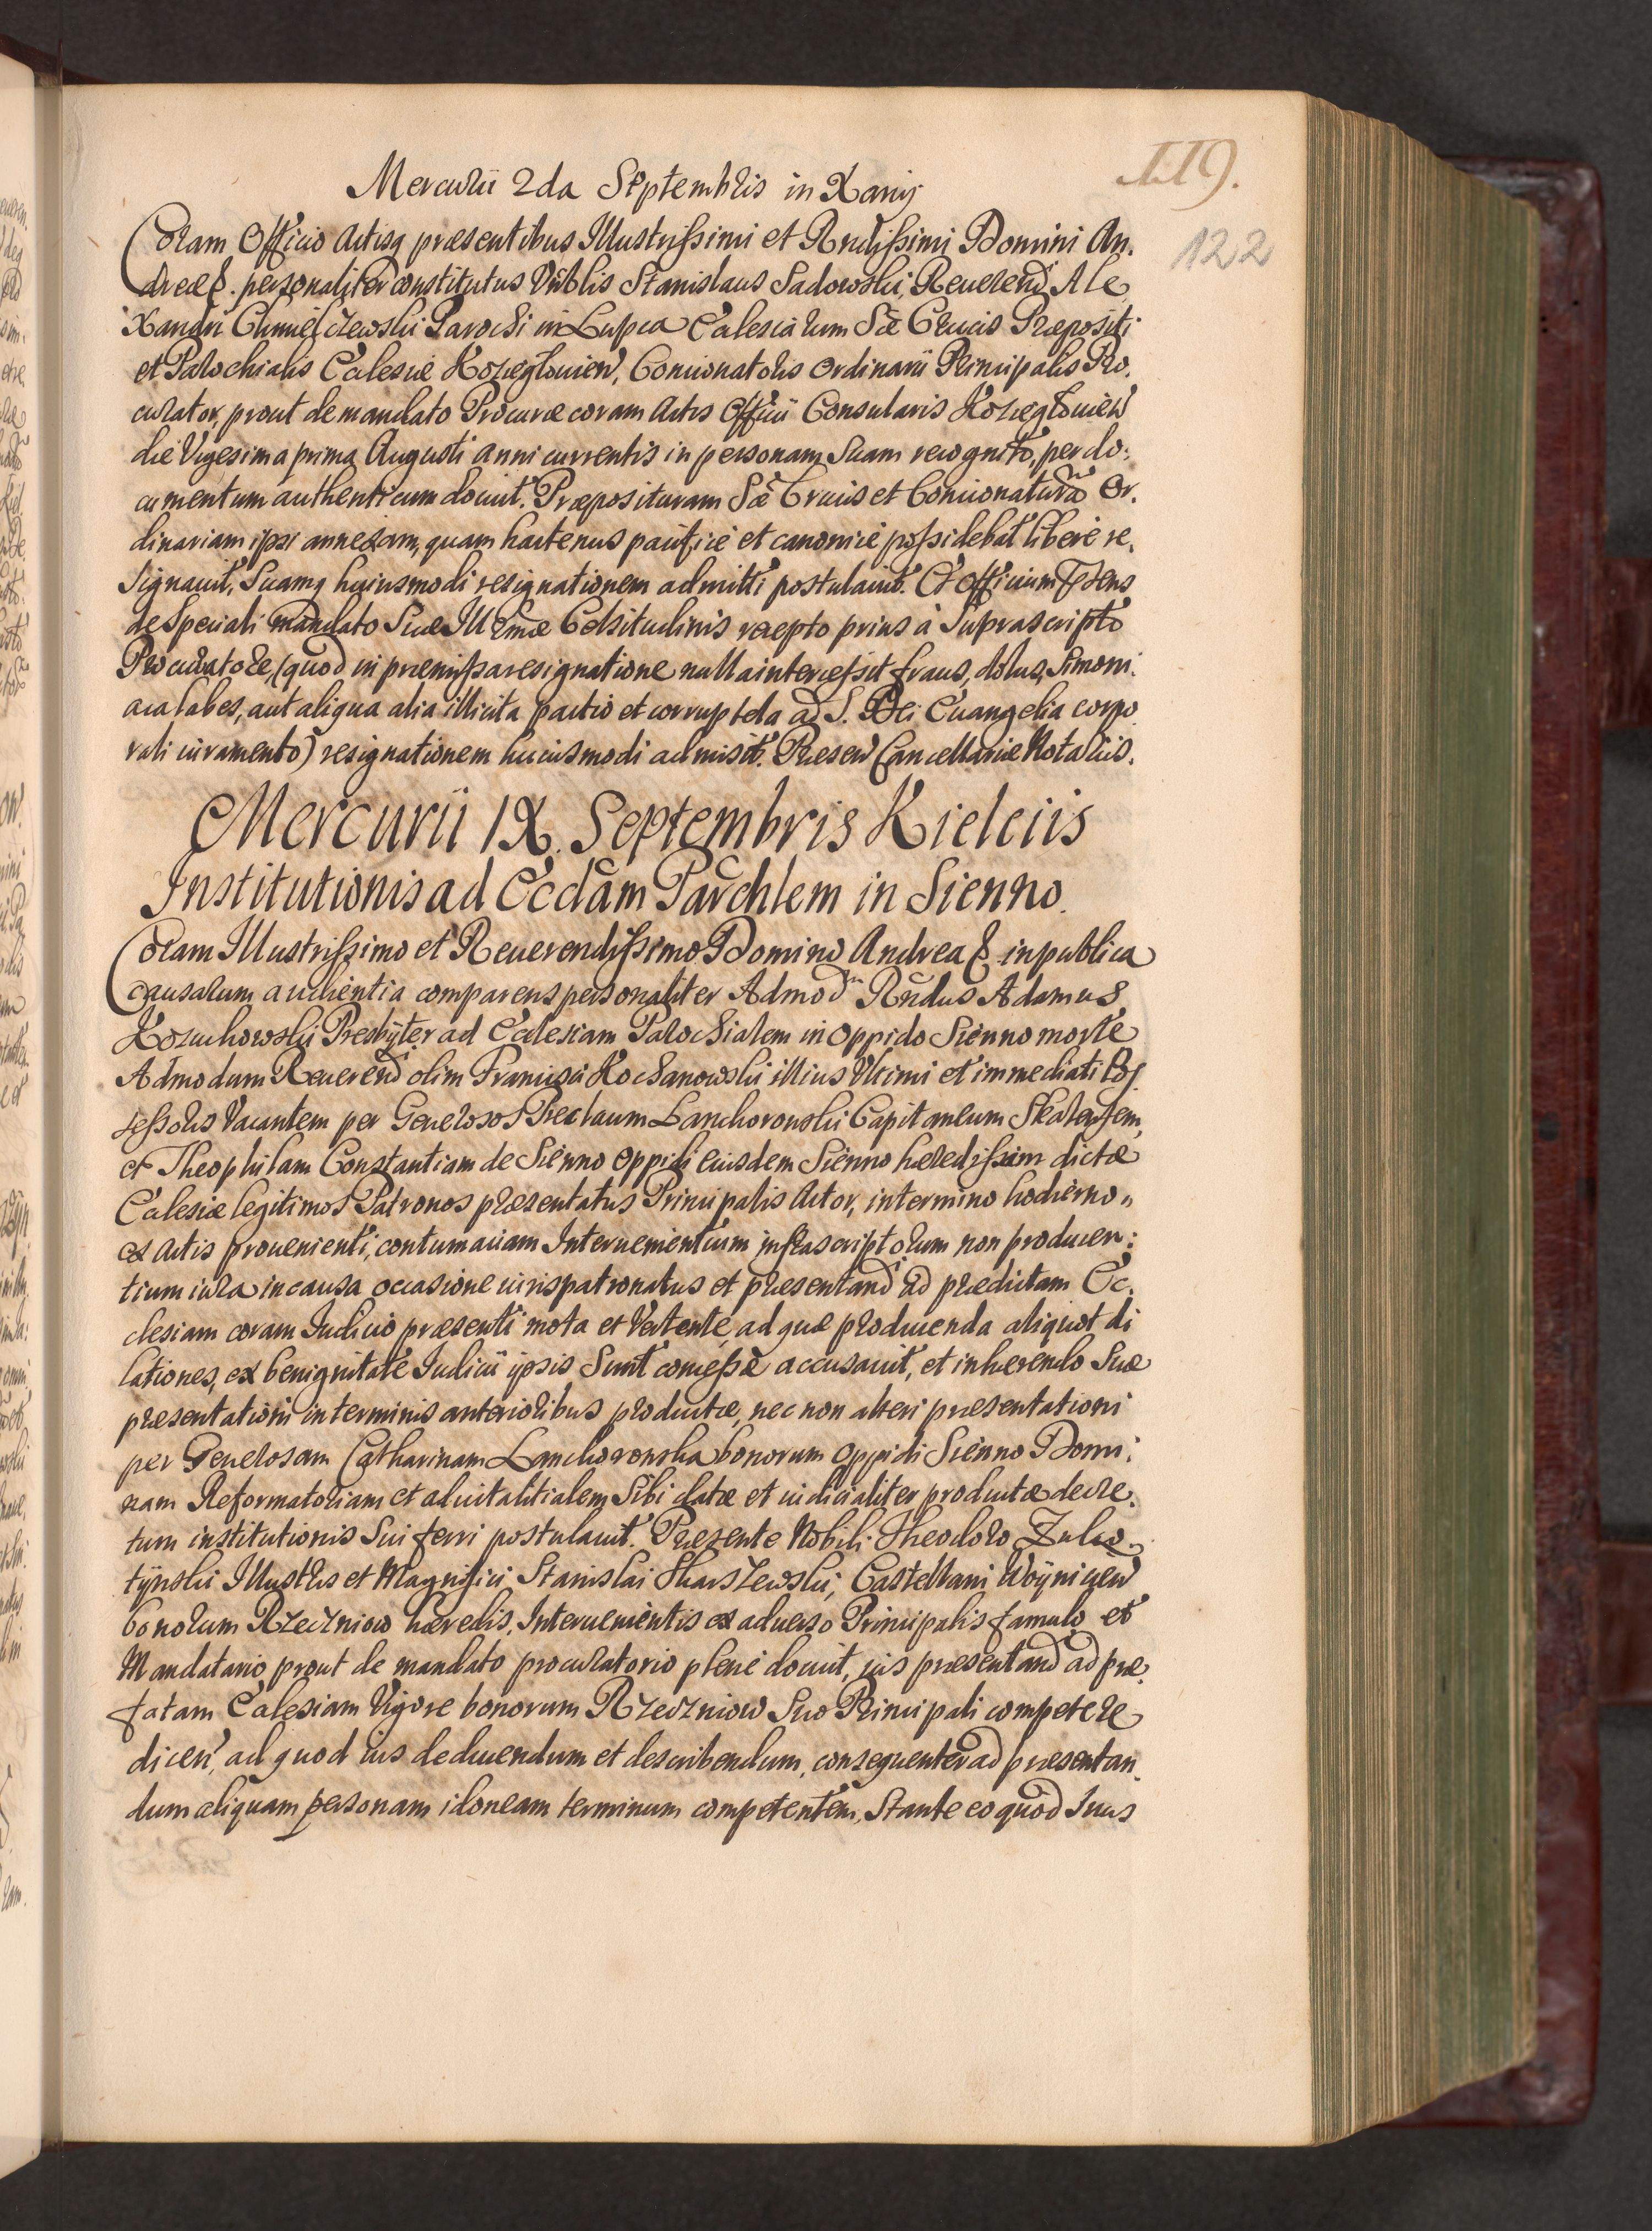 119.
122
Mercurii 2da Septembris in Xanÿ
Coram Officio Actisq præsentibus Illustrissimi et Rndissimi Domini An,
dreæ &. personaliter constitutus Nobilis Stanislaus Sadowski, Reverend Ale
xandri Chmielczewski Parochi in Lupca Ecclesiarum Sæ Crucis Præpositi
et Parochialis Ecclesiæ Kozieglovien, Concionatoris Ordinarii Principalis Pro,
curator, prout de mandato Procuræ coram Actis Officii Consularis Kozieglovien
die Vigesima prima Augusti anni currentis in personam Suam recognito, per do:
cumentum authenticum docuit. Præposituram Sæ Crucis et Concionatura Or,
dinariam ipsi annexam, quam hactenus pacificè et canonicè possidebat liberè re,
signavit, Suamq huiusmodi resignationem admitti postulavit. Et Officium
de Speciali mandato Suæ Illmæ Celsitudinis recepto prius à Suprascripto
Procuratore, (quod in præmissa resignatione nulla intercessit fraus, dolus, Simoni:
aca labes, aut aliqua alia illicita pactio et corruptela ad S. Dei Euangelia corpo
rali iuramento) resignationem huiusmodi admisit. Præsen Cancellariæ Notariis.
Mercurii IX. Septembris Kielciis
Institutionis ad Eccłam Parchlem in Sienno.
Coram Illustrissimo et Reuerendissimo Domino Andrea & in publica
causarum audientia comparens personaliter Admod Rndus Adamus
Kozuchowski Presbÿter ad Ecclesiam Parochialem in Oppido Sienno morte
Admodum Reuerend olim Francisci Kochanowski illius Vltimi et immediati Pos
sessoris Vacantem per Generosos Præclaum Lanckoronski Capitaneum Skalensem,
et Theophilam Constantiam de Sienno oppidi eiusdem Sienno hæredissam dictæ
Ecclesiæ legitimos Patronos præsentatus Principalis Actor, in termino hodierno,,
ex Actis prouenienti, contumaciam Interuenientium infrascriptorum non producen:
tium iura in causa occasione iurispatronatus et præsentand ad prædictam Ec,
clesiam coram Iudicio præsenti mota et Vertente, ad quæ producenda aliquot di
lationes, ex benignitate Iudicii ipsis Sunt concessæ accusauit, et inhærendo Suæ
præsentationi in terminis anterioribus productæ, nec non alteri præsentationi
per Generosam Catharinam Lanckoronska bonorum oppidi Sienno Domi:
nam Reformatoriam et aduitalitialem Sibi datæ et iudicialiter productæ decre,
tum institutionis Sui ferri postulauit. Præsente Nobili Theodoro
tÿnski Illustris et Magnifici Stanislai Skarszewski, Castellani Woÿnicen
bonorum Rzeczniow hæredis, Interuenientis ex aduerso Principalis famulo et
Mandatario prout de mandato procuratorio plenè docuit, ius præsentand ad præ,
fatam Ecclesiam Vigore bonorum Rzeczniow Suo Principali competere
dicen, ad quod ius deducendum et describendum, consequenter ad præsentan,
dum aliquam personam idoneam terminum competentem, Stante eo quod